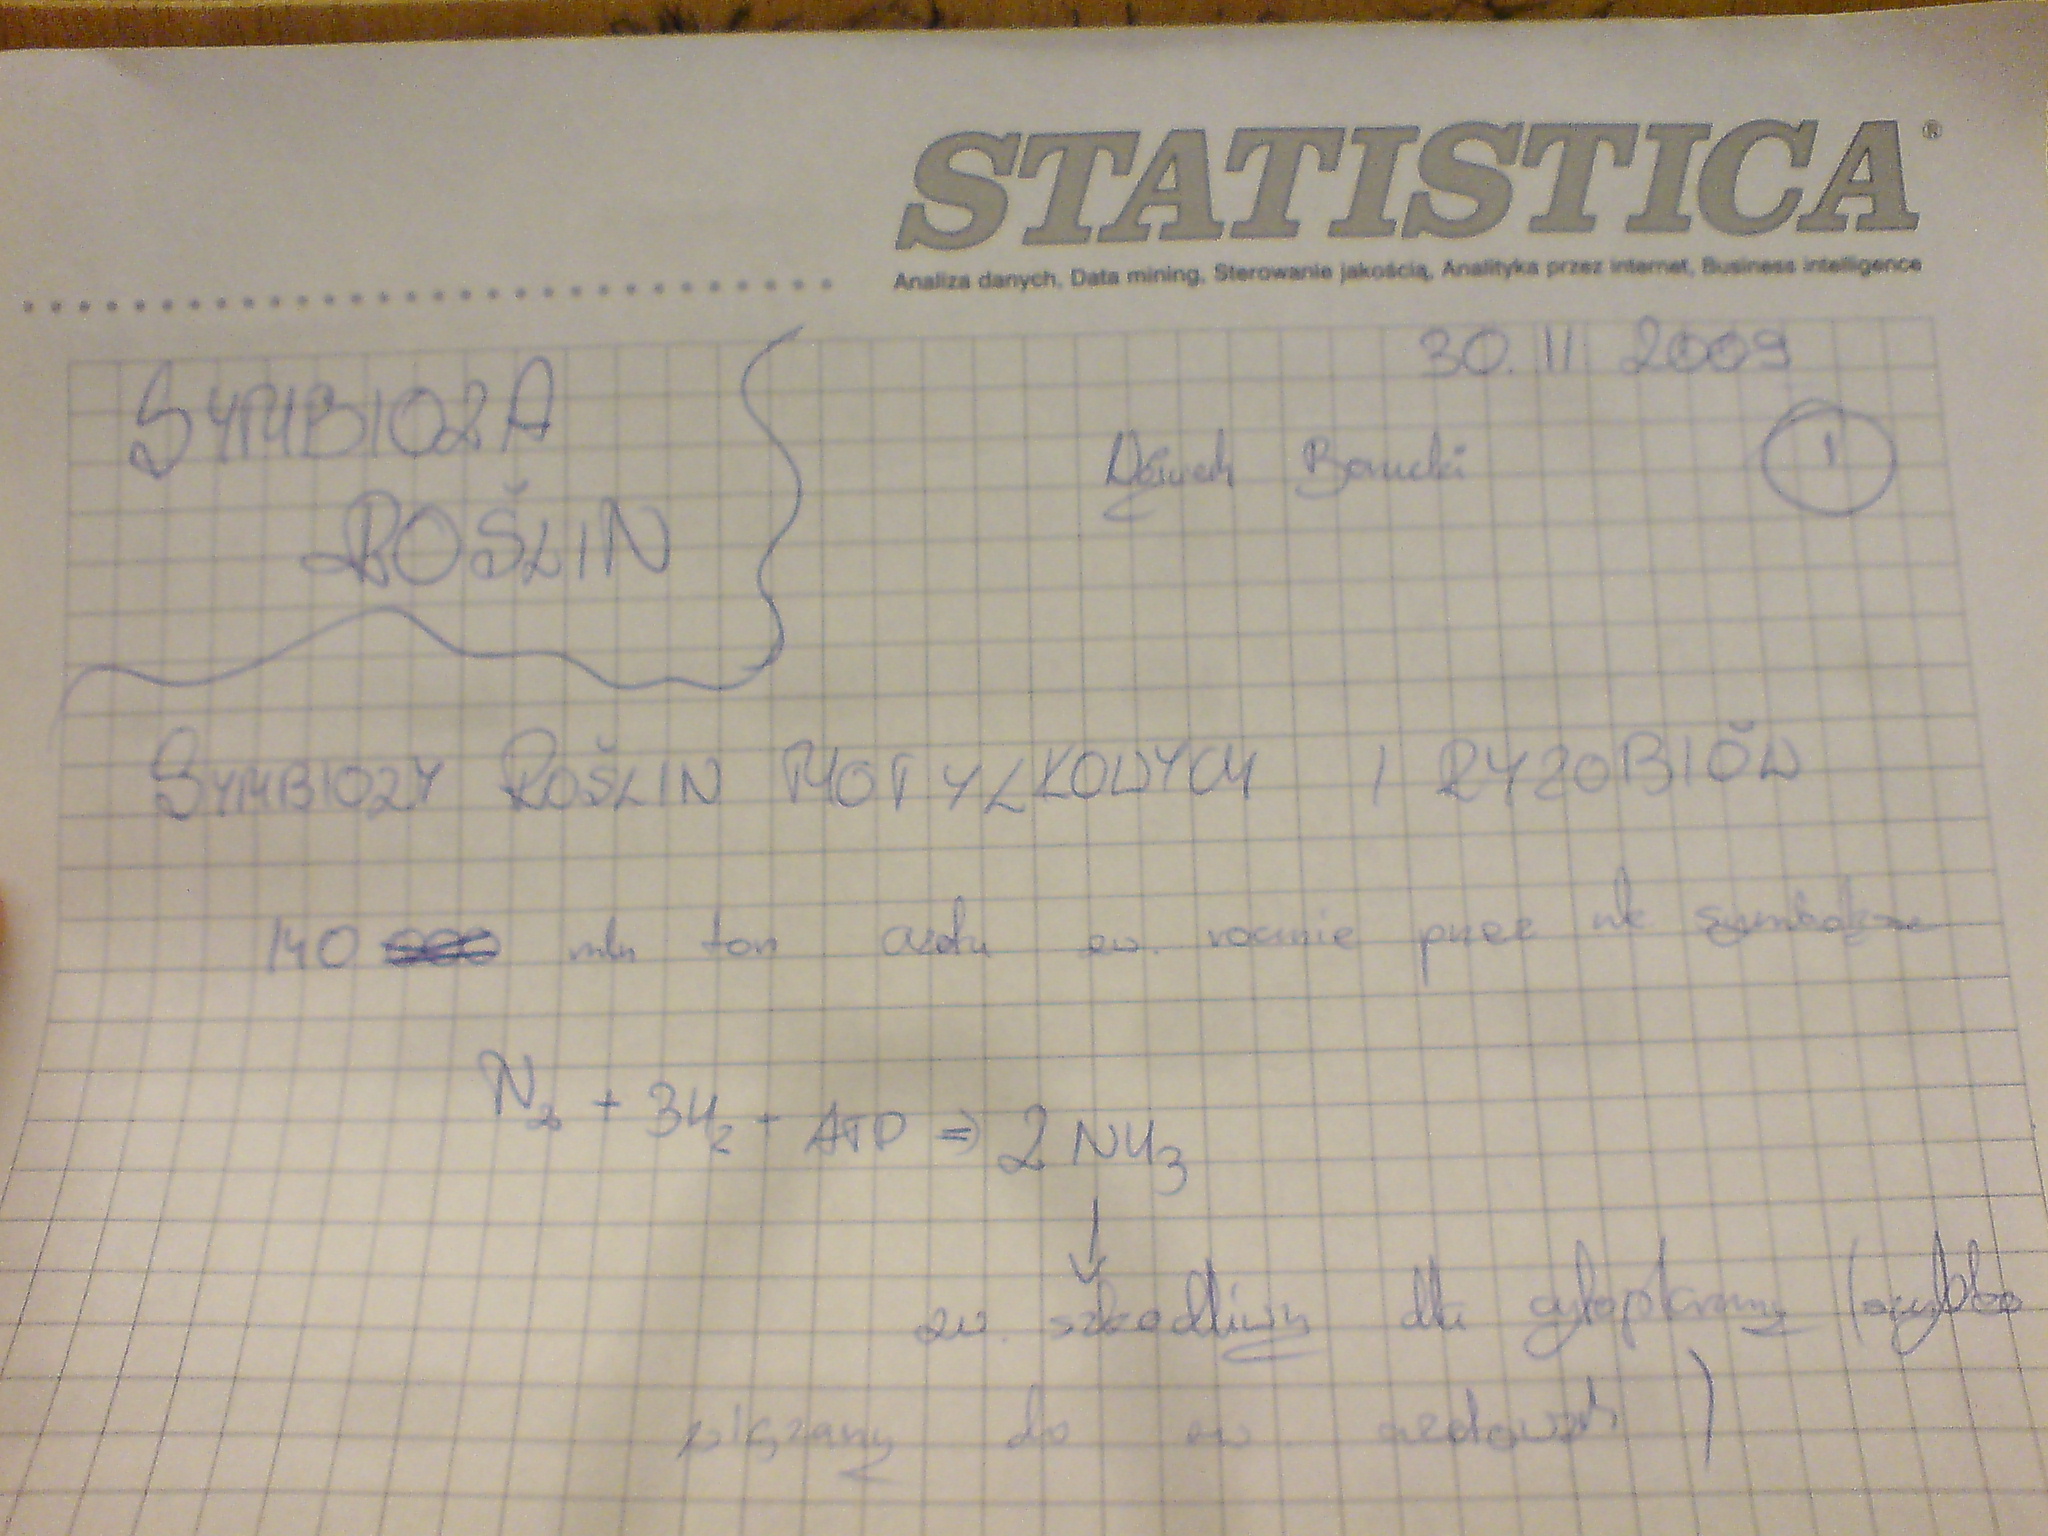 STATISTICA®
Analiza danych, Data mining, Sterowanie jakością, Analityka przez internet, Business intelligence
30.11.2009
SYMBIOZA
ROŚLIN
1
SYMBIOZY ROŚLIN MOTYLKOWYCH I RYZOBIÓW
140 mln ton azotu zw. rocznie przez
N2 + 3H2 + ATP => 2NH3
↓
zw. szkodliwy dla cytoplazmy (szybko
wiązany do zw. azotowych)